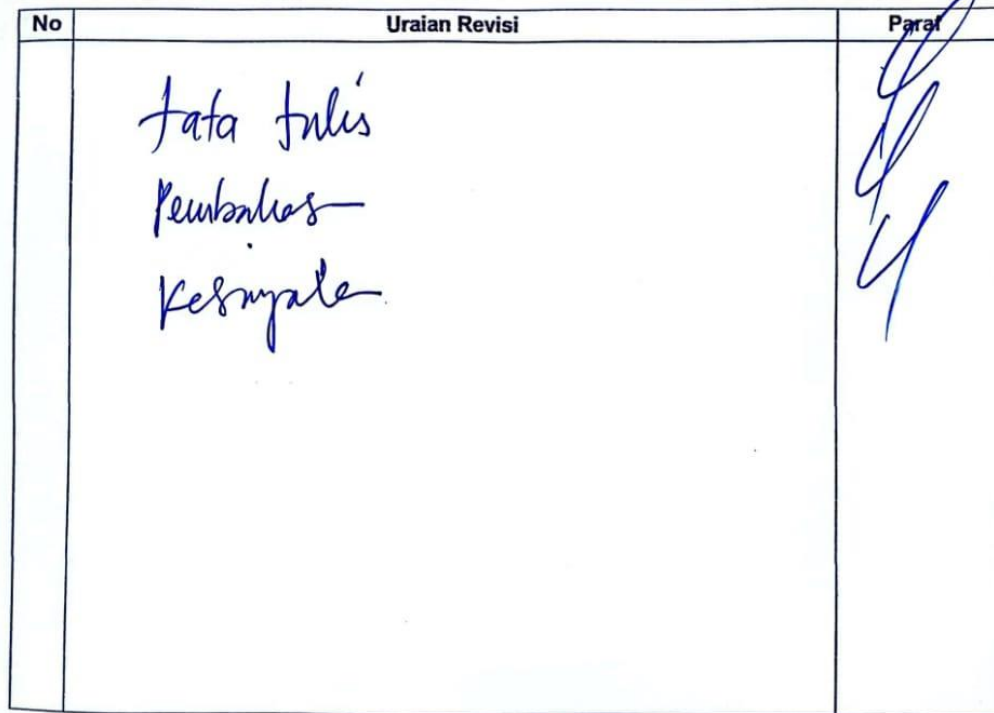 No Uraian Revisi Paraf
tata tulis
Pembahas
Kesimpula